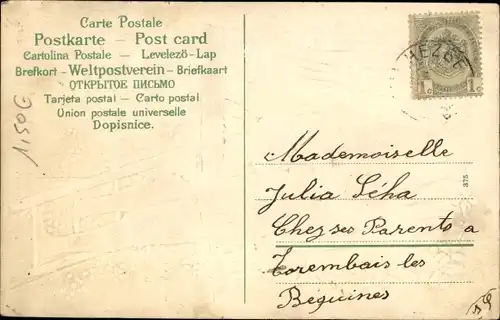 Carte Postale
Postkarte — Post card
Cartolina Postale — Levelező-Lap
Brefkort - Weltpostverein - Briefkaart
ОТКРЫТОЕ ПИСЬМО
Tarjeta postal — Carto postal
Union postale universelle
Dopisnice.
1,50€
1 1
Mademoiselle
Julia Séha
Chez ses Parents a
Torembais les
Béguines
375